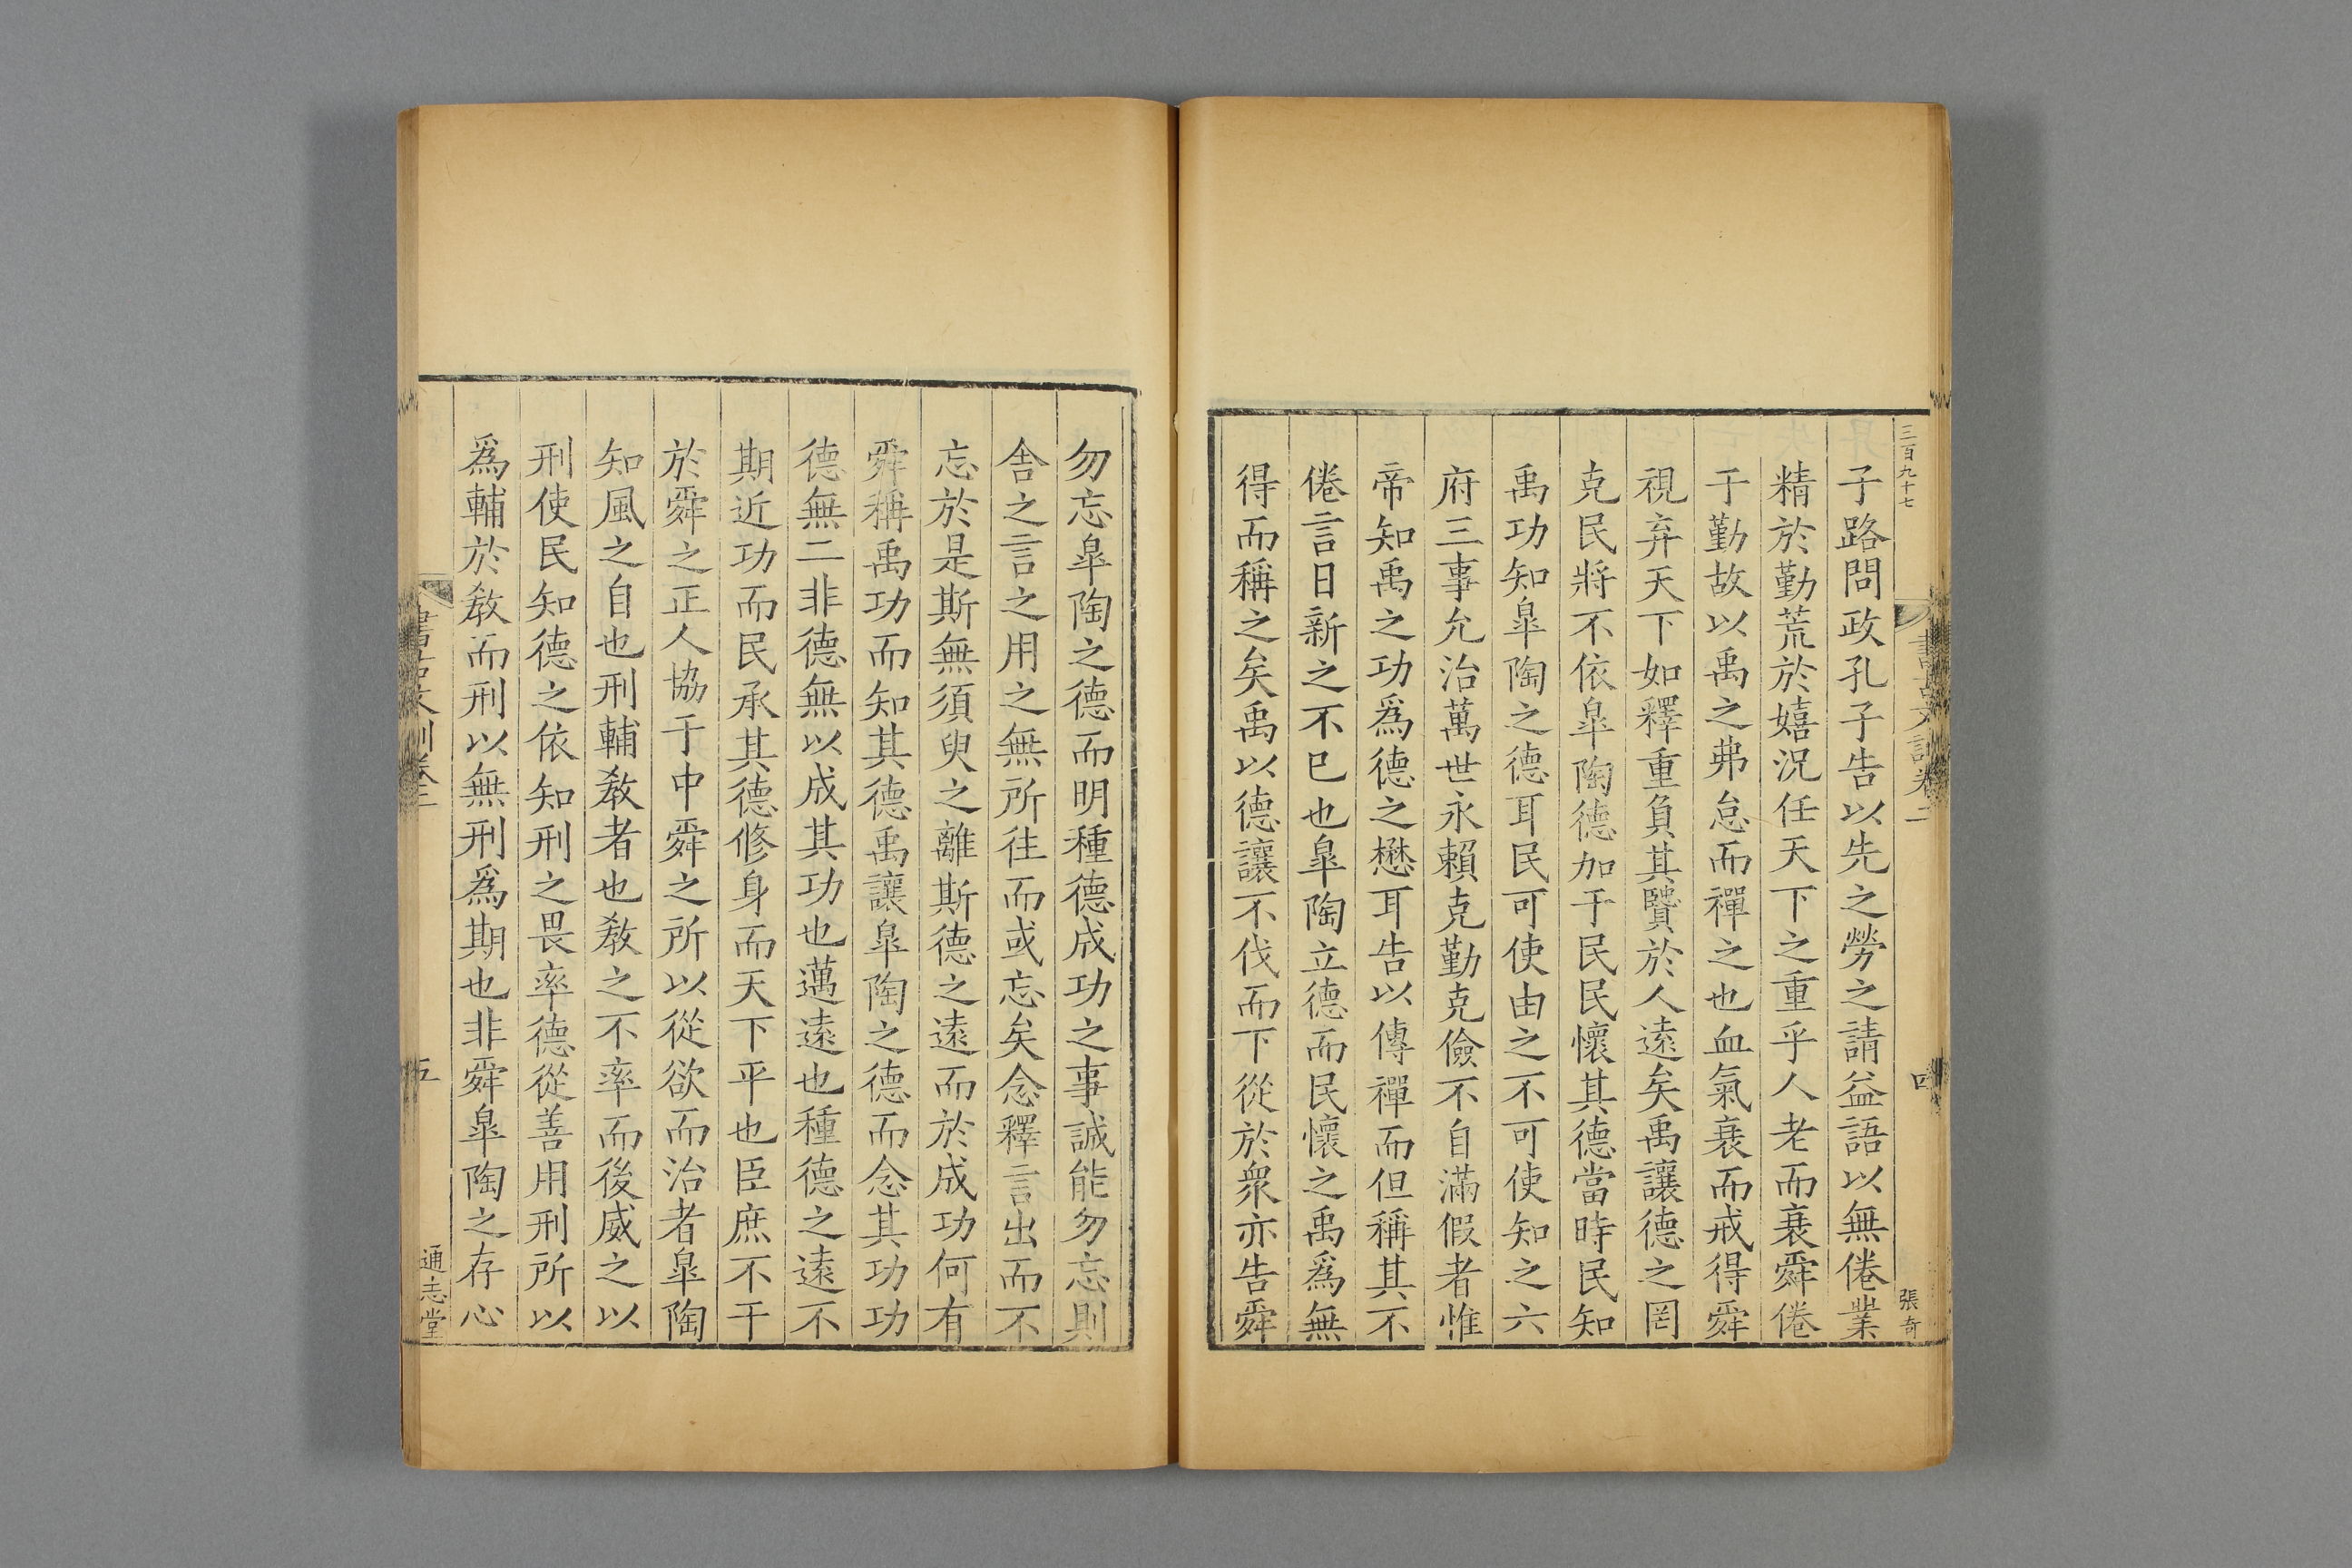 三百九十七
書古文訓卷二
四
張奇
子路問政孔子告以先之勞之請益語以無倦業
精於勤荒於嬉況任天下之重乎人老而衰舜倦
于勤故以禹之弗怠而禪之也血氣衰而戒得舜
視弃天下如釋重負其賢於人遠矣禹讓德之罔
克民將不依皐陶德加于民民懷其德當時民知
禹功知皐陶之德耳民可使由之不可使知之六
府三事允治萬世永賴克勤克儉不自滿假者惟
帝知禹之功爲德之懋耳告以傳禪而但稱其不
倦言日新之不已也皐陶立德而民懷之禹爲無
得而稱之矣禹以德讓不伐而下從於衆亦告舜
勿忘皐陶之德而明種德成功之事誠能勿忘則
舍之言之用之無所往而或忘矣念釋言出而不
忘於是斯無須臾之離斯德之遠而於成功何有
舜稱禹功而知其德禹讓皐陶之德而念其功功
德無二非德無以成其功也邁遠也種德之遠不
期近功而民承其德修身而天下平也臣庶不干
於舜之正人協于中舜之所以從欲而治者皐陶
知風之自也刑輔敎者也敎之不率而後威之以
刑使民知德之依知刑之畏率德從善用刑所以
爲輔於敎而刑以無刑爲期也非舜皐陶之存心
書古文訓卷二
五
通志堂